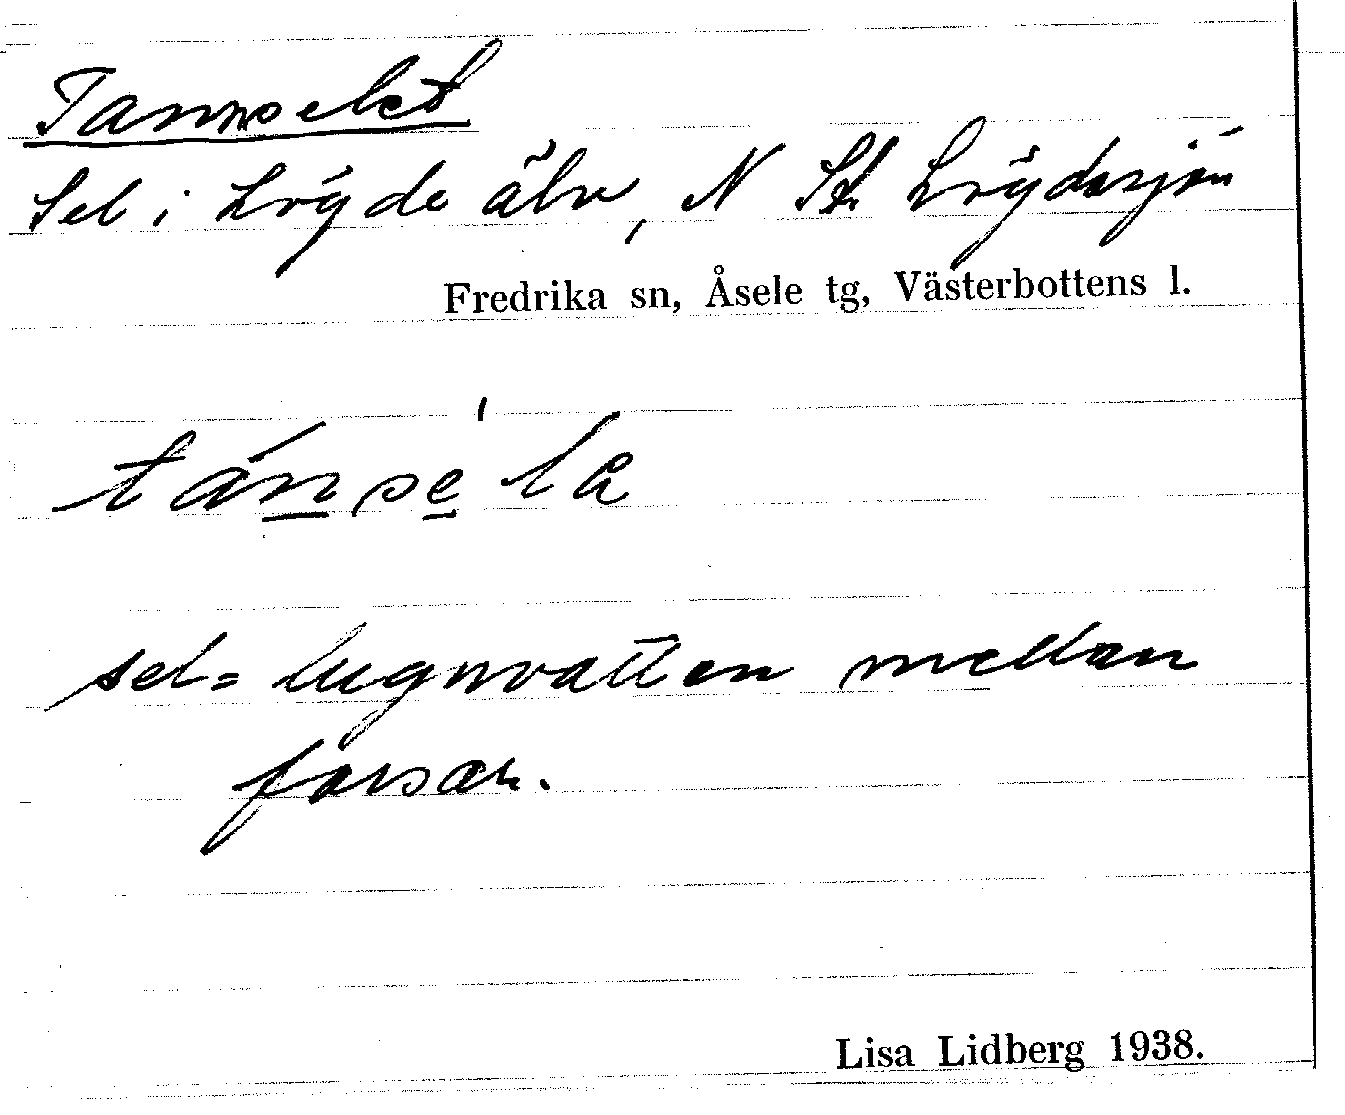 Tannselet
Sel i Lögde älv, N St. Lögdasjön
Fredrika sn, Åsele tg, Västerbottens l.
tánse̍la
sel = lugnvatten mellan
forsar.
Lisa Lidberg 1938.